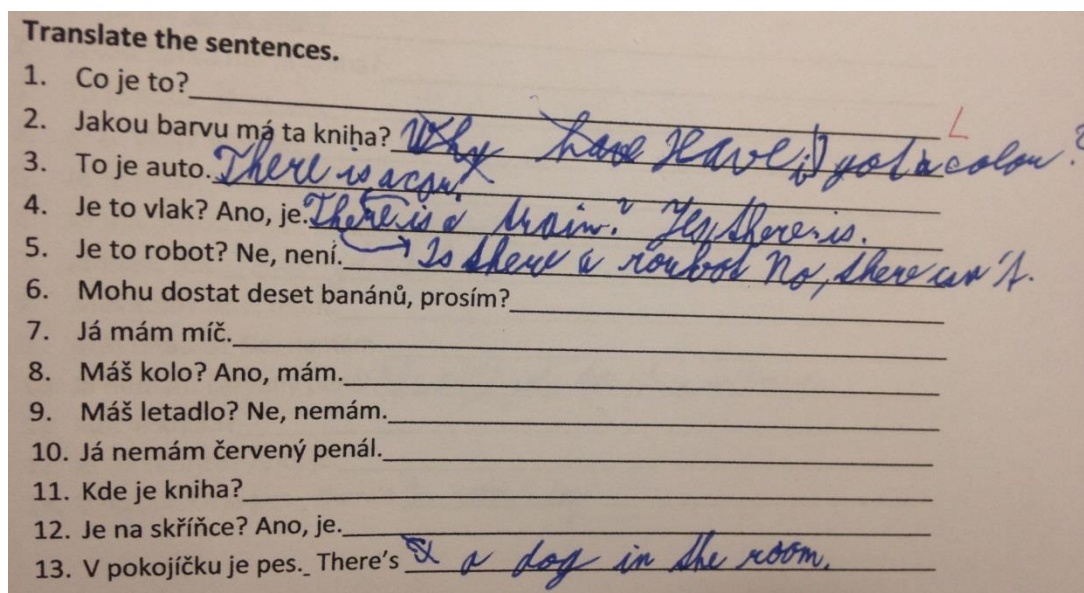 Translate the sentences.
1. Co je to?
2. Jakou barvu má ta kniha? Why have Have it got a colour?
3. To je auto. There is a car.
4. Je to vlak? Ano, je. There is a train? Yes, there is.
5. Je to robot? Ne, není. Is there a roubot No, there isn't.
6. Mohu dostat deset banánů, prosím?
7. Já mám míč.
8. Máš kolo? Ano, mám.
9. Máš letadlo? Ne, nemám.
10. Já nemám červený penál.
11. Kde je kniha?
12. Je na skříňce? Ano, je.
13. V pokojíčku je pes. There's a dog in the room.